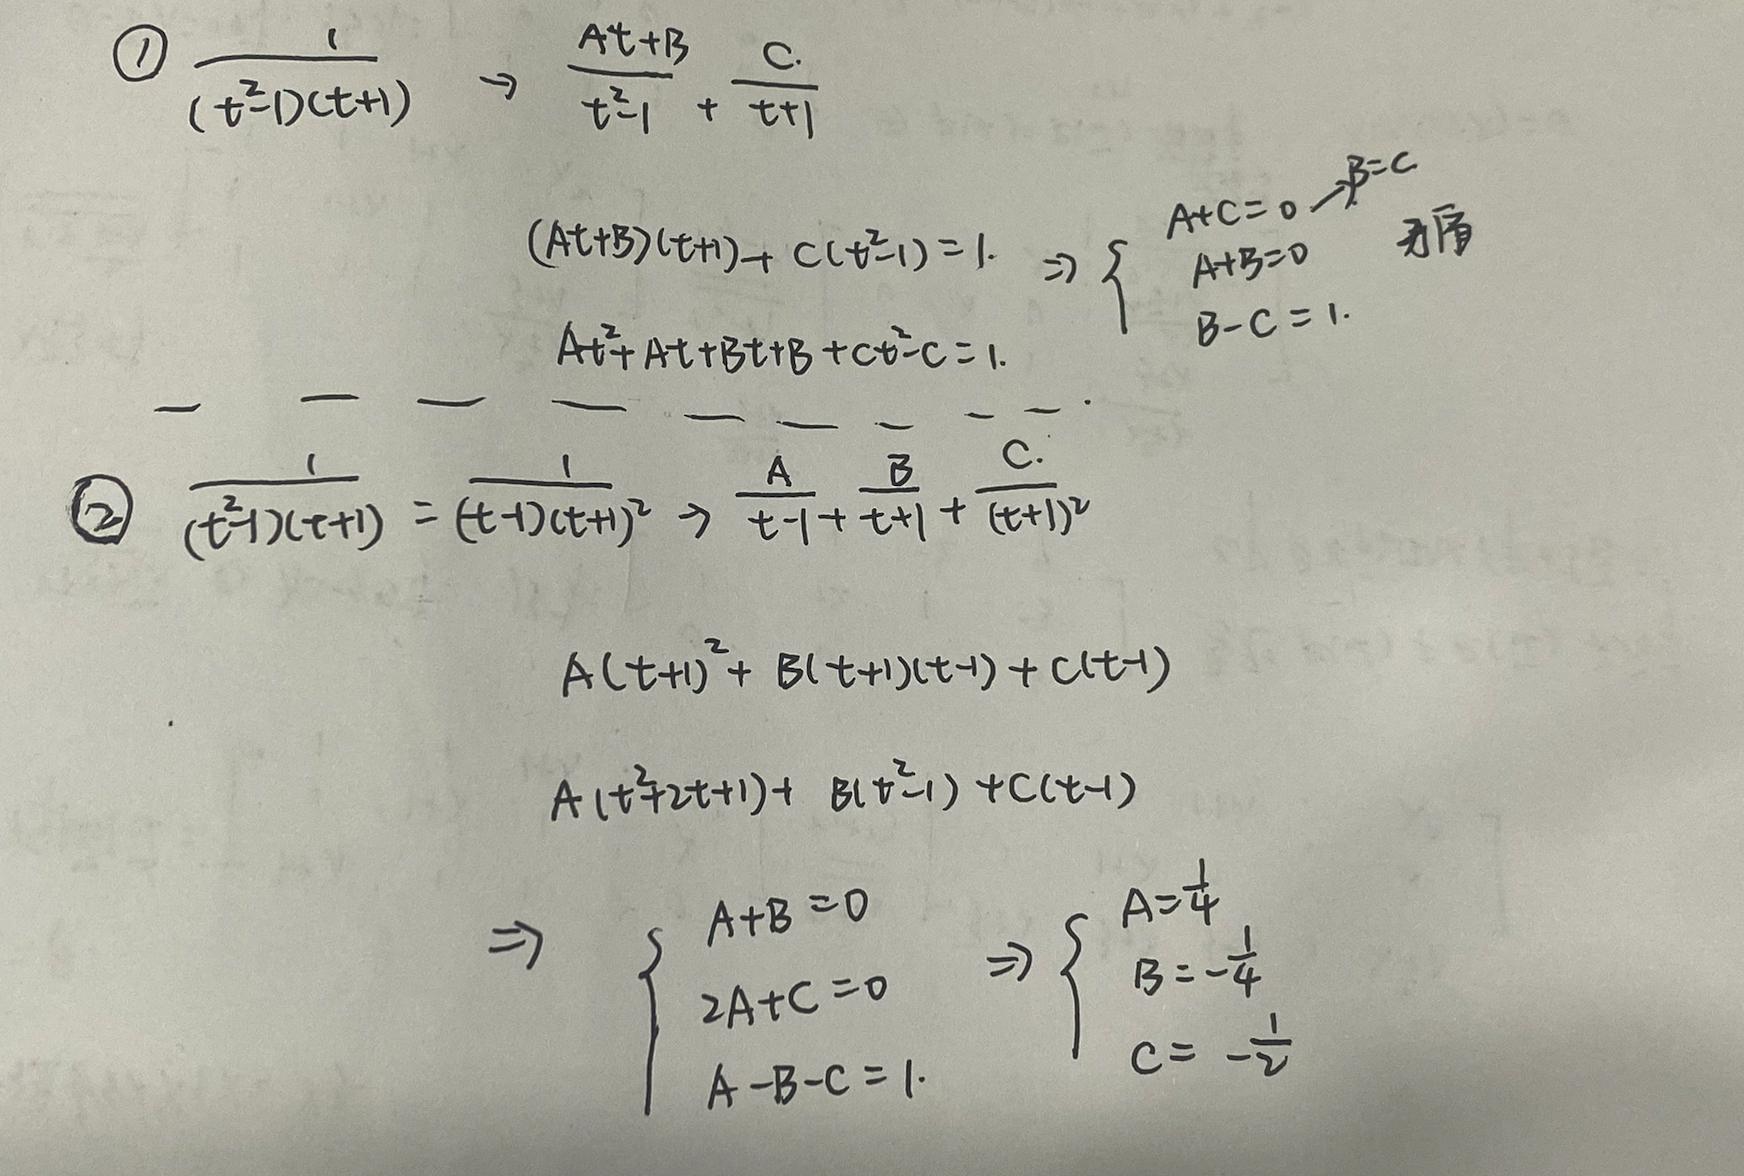 ① 1/((t²-1)(t+1)) → (At+B)/(t²-1) + C./(t+1)
(At+B)(t+1)+C(t²-1)=1. ⇒ { A+C=0 → B=C
A+B=0 矛盾
B-C=1.
At²+At+Bt+B+Ct²-C=1.
② 1/((t²-1)(t+1)) = 1/((t-1)(t+1)²) → A/(t-1) + B/(t+1) + C./(t+1)²
A(t+1)²+B(t+1)(t-1)+C(t-1)
A(t²+2t+1)+B(t²-1)+C(t-1)
⇒ { A+B=0 ⇒ { A=1/4
2A+C=0 B=-1/4
A-B-C=1. C=-1/2